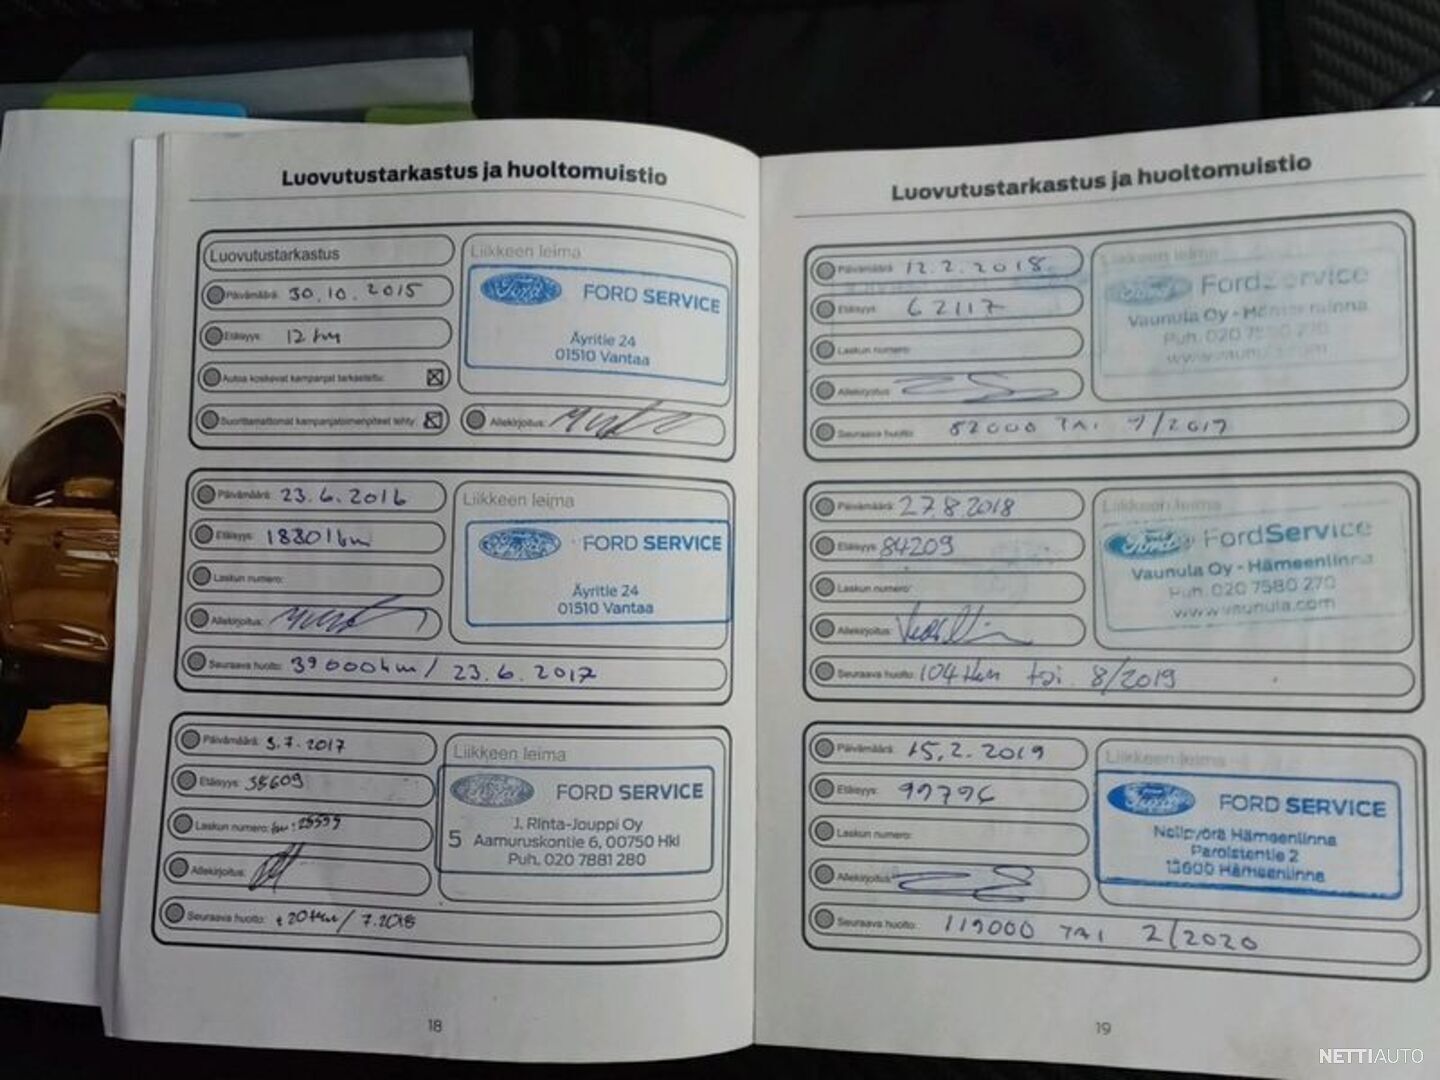 Luovutustarkastus ja huoltomuistio
Luovutustarkastus
Päivämäärä: 30.10.2015
Etäisyys: 12 km
Autoa koskevat kampanjat tarkastettu:
Suorittamattomat kampanjatoimenpiteet tehty:
Liikkeen leima
Ford FORD SERVICE
Äyritie 24
01510 Vantaa
Allekirjoitus:
Päivämäärä: 23.6.2016
Etäisyys: 18801 km
Laskun numero:
Allekirjoitus:
Liikkeen leima
Ford FORD SERVICE
Äyritie 24
01510 Vantaa
Seuraava huolto: 39000km / 23.6.2017
Päivämäärä: 3.7.2017
Etäisyys: 38609
Laskun numero:
Allekirjoitus:
Liikkeen leima
FORD SERVICE
J. Rinta-Jouppi Oy
5 Aamuruskontie 6, 00750 Hki
Puh. 020 7881 280
Seuraava huolto: +20tkm / 7.2018
18
Luovutustarkastus ja huoltomuistio
Päivämäärä: 12.2.2018
Etäisyys: 62117
Laskun numero:
Allekirjoitus:
Liikkeen leima
FordService
Vaunula Oy - Hämeenlinna
Puh. 020 7580 270
www.vaunula.com
Seuraava huolto: 82000 TAI
Päivämäärä: 27.8.2018
Etäisyys: 84209
Laskun numero:
Allekirjoitus:
Liikkeen leima
Ford FordService
Vaunula Oy - Hämeenlinna
Puh. 020 7580 270
www.vaunula.com
Seuraava huolto: 104tkm tai 8/2019
Päivämäärä: 15.2.2019
Etäisyys: 99796
Laskun numero:
Allekirjoitus:
Liikkeen leima
Ford FORD SERVICE
Nelipyörä Hämeenlinna
Parolantie 2
13600 Hämeenlinna
Seuraava huolto: 119000 TAI 2/2020
19
NETTIAUTO